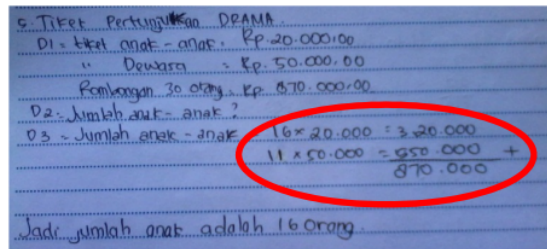 5. Tiket Pertunjukan DRAMA.
D1 = tiket anak - anak. Rp. 20.000,00
" Dewasa = Rp. 50.000,00
Rombongan 30 orang. Rp. 870.000,00
D2 = Jumlah anak - anak ?
D3 = Jumlah anak - anak 16 x 20.000 = 320.000
11 x 50.000 = 550.000 +
870.000
Jadi jumlah anak adalah 16 orang.